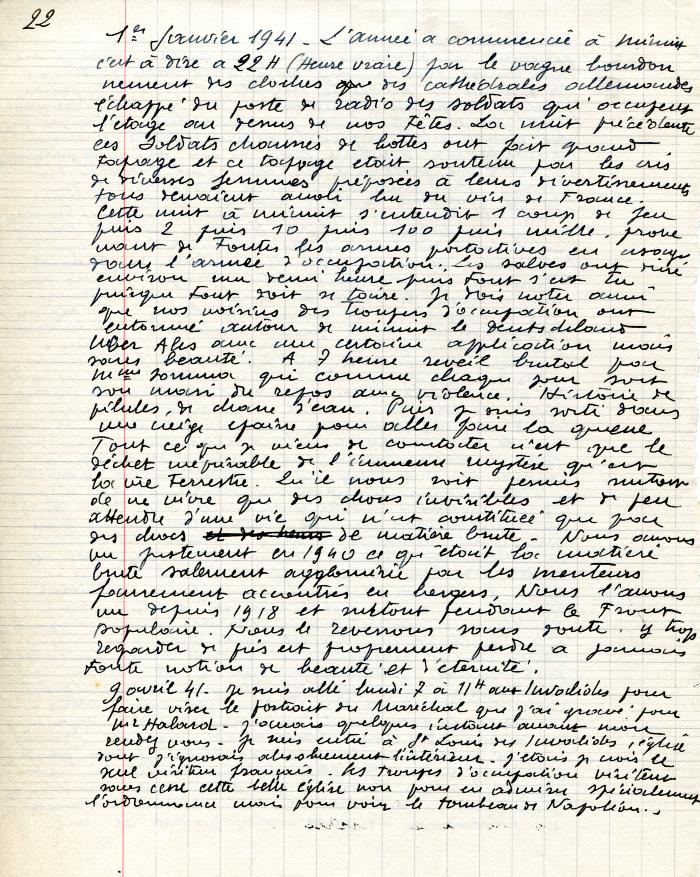 22
1er Janvier 1941 - L'année a commencée à minuit
c'est à dire a 22H (Heure vraie) par le vague bourdon
nement des cloches des cathédrales allemandes
échappé du poste de radio des soldats qui occupent
l'étage au dessus de nos têtes. La nuit précédente
ces Soldats chaussés de bottes ont fait grand
tapage et ce tapage etait soutenu par les cris
de diverses femmes préposées à leurs divertissements
tous devaient avoir bu du vin de France.
Cette nuit à minuit s'entendit 1 coup de feu
puis 2 puis 10 puis 100 puis mille, prove
nant de Toutes les armes portatives en usage
dans l'armée d'occupation. Les salves ont duré
environ une demi heure puis Tout s'est tu
puisque Tout doit se taire. Je dois noter aussi
que nos voisins des troupes d'occupation ont
entonné autour de minuit le deutschland
über Ales avec une certaine application mais
sans beauté. A 7 heure reveil brutal par
Mme qui comme chaque jour sort
son mari du repos avec violence. Histoire de
pilules, de chasse d'eau. Puis je suis sorti dans
une neige épaisse pour aller faire la queue
Tout ce que je viens de constater n'est que le
déchet inépuisable de l'immense mystère qu'est
la vie Terrestre. Qu'il nous soit permis surtout
de ne vivre que des choses invisibles et de peu
attendre d'une vie qui n'est constituée que par
des chocs de matière brute - Nous avons
vu justement en 1940 ce qu'etait la matière
brute salement agglomérée par les menteurs
faussement accoutrés en bergers, Nous l'avons
vu depuis 1918 et surtout pendant le Front
populaire. Nous le reverrons sans doute. y trop
regarder de près est proprement perdre à jamais
Toute notion de beauté et d'éternité.
9 avril 41 - Je suis allé lundi 7 à 11H aux Invalides pour
faire viser le portrait du Maréchal que j'ai gravé pour
Mr Habard - J'avais quelques instant avant mon
rendez vous - Je suis entré à St Louis des Invalides, l'église
dont j'ignorais absolument l'intérieur. J'étais je crois le
seul visiteur français. Les troupes d'occupation visitent
sans cesse cette belle église non pour en admirer spécialement
l'ordonnance mais pour voir le tombeau de Napoléon.